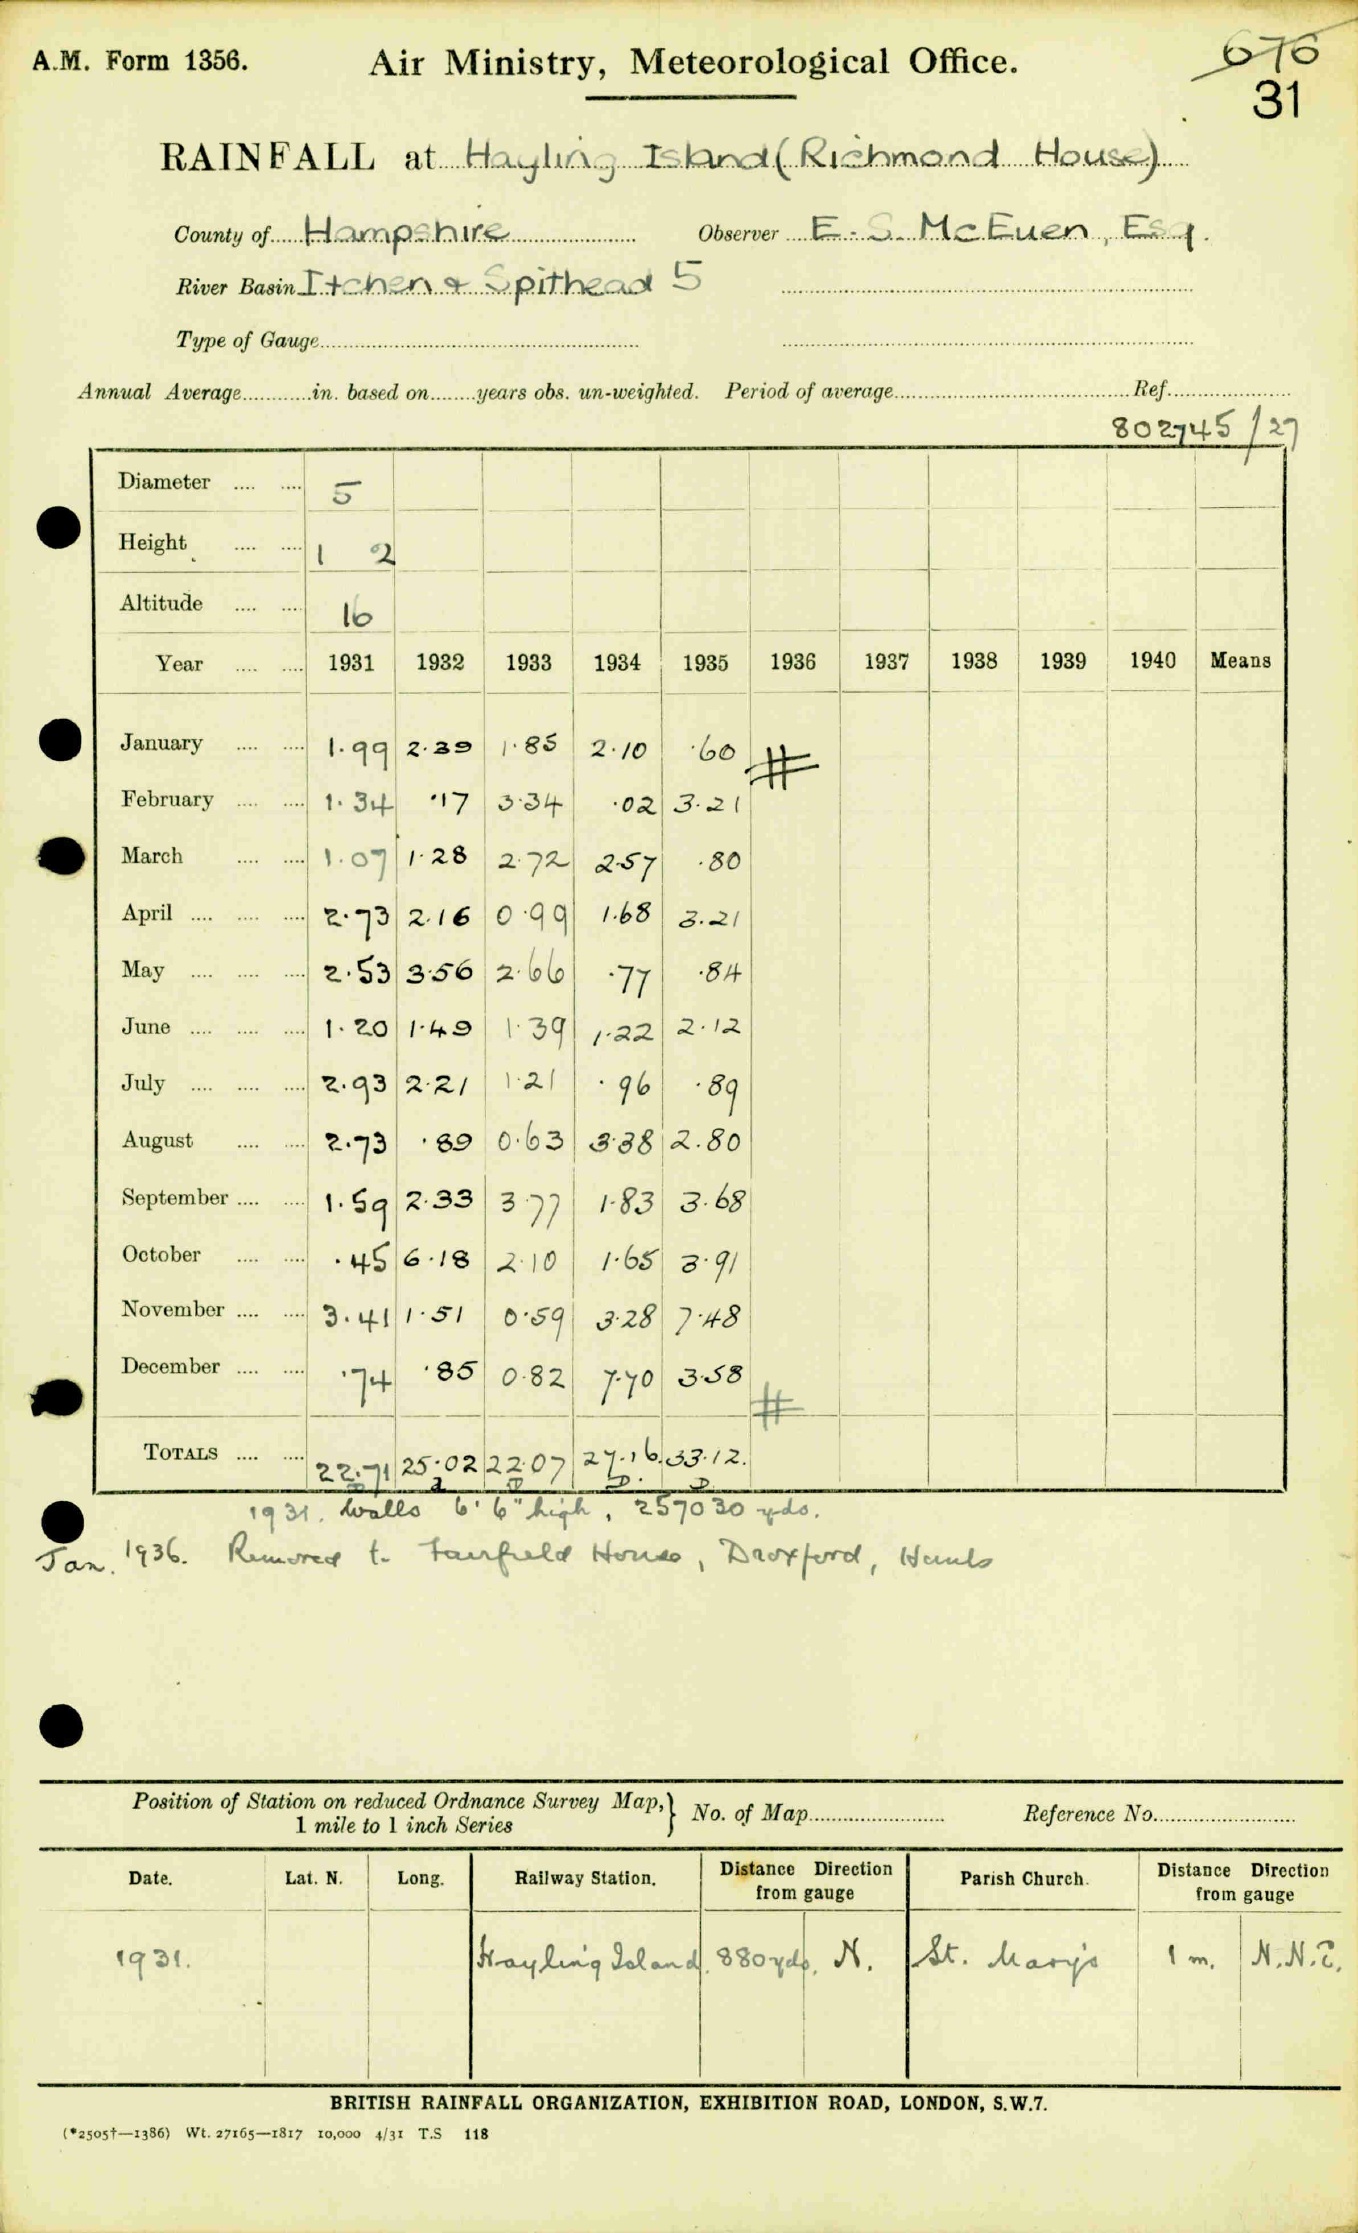 A.M. Form 1356. Air Ministry, Meteorological Office. 676
31
RAINFALL at Hayling Island (Richmond House)
County of Hampshire Observer E. S. McEuen, Esq.
River Basin Itchen & Spithead 5
Type of Gauge
Annual Average in. based on years obs. un-weighted. Period of average Ref.
802745/27
Diameter 5
Height 1 2
Altitude 16
Year 1931 1932 1933 1934 1935 1936 1937 1938 1939 1940 Means
January 1.99 2.39 1.85 2.10 .60 #
February 1.34 .17 3.34 .02 3.21
March 1.07 1.28 2.72 2.57 .80
April 2.73 2.16 0.99 1.68 3.21
May 2.53 3.56 2.66 .77 .84
June 1.20 1.49 1.39 1.22 2.12
July 2.93 2.21 1.21 .96 .89
August 2.73 .89 0.63 3.38 2.80
September 1.59 2.33 3.77 1.83 3.68
October .45 6.18 2.10 1.65 3.91
November 3.41 1.51 0.59 3.28 7.48
December .74 .85 0.82 7.70 3.58 #
TOTALS 22.71 25.02 22.07 27.16 33.12
1931. Walls 6' 6" high, 257030 yds.
Jan. 1936. Removed to Fairfield House, Droxford, Hants
Position of Station on reduced Ordnance Survey Map, } No. of Map Reference No.
1 mile to 1 inch Series
Date. Lat. N. Long. Railway Station. Distance Direction from gauge Parish Church. Distance Direction from gauge
1931. Hayling Island. 880 yds. N. St. Mary's 1 m. N.N.E.
BRITISH RAINFALL ORGANIZATION, EXHIBITION ROAD, LONDON, S.W.7.
(*2505†—1386) Wt. 27165—1817 10,000 4/31 T.S 118